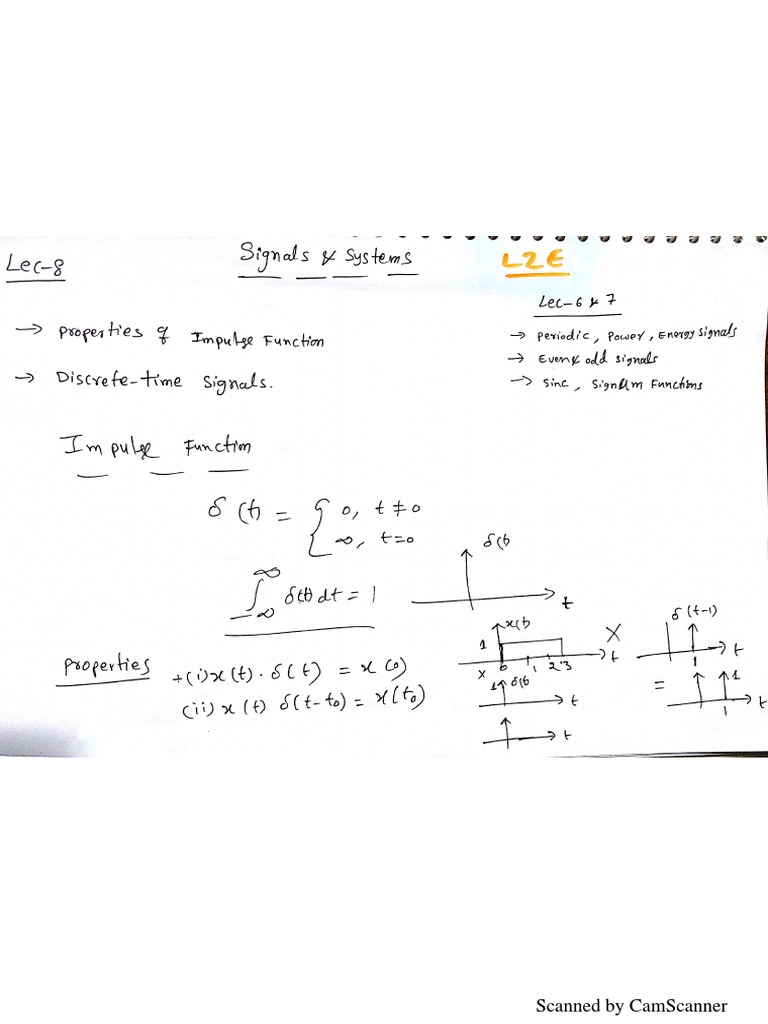 Lec-8
Signals & Systems
LZE
Lec-6 & 7
→ Properties of Impulse Function
→ Discrete-time Signals.
→ Periodic, Power, Energy Signals
→ Even & odd signals
→ Sinc, Signum Functions
Impulse Function
δ(t) = { 0, t ≠ 0
∞, t=0
∫_{-∞}^{∞} δ(t) dt = 1
δ(t)
t
Properties
+(i) x(t) . δ(t) = x(0)
(ii) x(t) δ(t-t₀) = x(t₀)
x(t)
1
0 1 2 3 t
X
x
1 δ(t)
t
t
δ(t-1)
1 t
= 1
1 t
Scanned by CamScanner